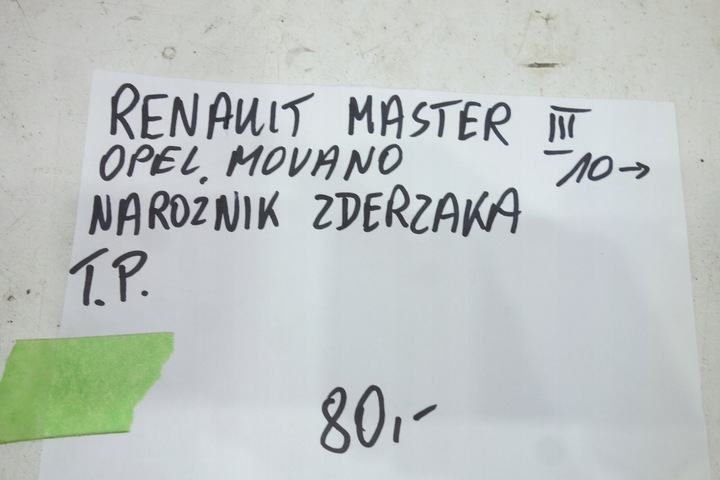 RENAULT MASTER III
OPEL. MOVANO 10→
NAROZNIK ZDERZAKA
T.P.
80,-